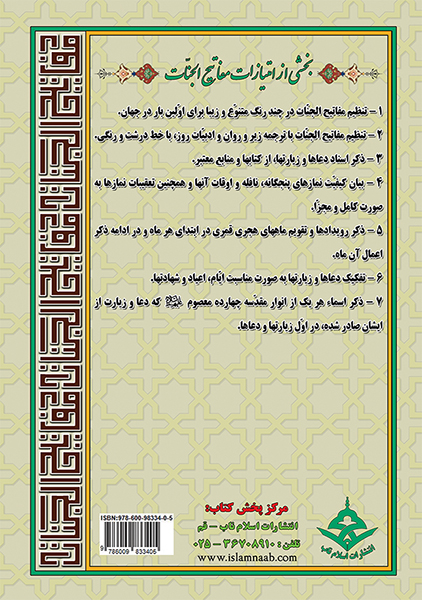 بخشی از امتیازات مفاتیح الجنّات
۱ – تنظیم مفاتیح الجنّات در چند رنگ متنوّع و زیبا برای اوّلین بار در جهان.
۲ – تنظیم مفاتیح الجنّات با ترجمه زیر و روان و ادبیّات روز، با خط درشت و رنگی.
۳ – ذکر اسناد دعاها و زیارتها، از کتابها و منابع معتبر.
۴ – بیان کیفیّت نمازهای پنجگانه، نافله و اوقات آنها و همچنین تعقیبات نمازها به
صورت کامل و مجزّا.
۵ – ذکر رویدادها و تقویم ماههای هجری قمری در ابتدای هر ماه و در ادامه ذکر
اعمال آن ماه.
۶ – تفکیک دعاها و زیارتها به صورت مناسبت ایّام، اعیاد و شهادتها.
۷ – ذکر اسماء هر یک از انوار مقدّسه چهارده معصوم که دعا و زیارت از
ایشان صادر شده، در اوّل زیارتها و دعاها.
ISBN:978-600-98334-0-5
9 786009 833405
مرکز پخش کتاب:
انتشارات اسلام ناب – قم
تلفن: ۳۶۷۰۸۹۱۰ – ۰۲۵
www.islamnaab.com
انتشارات اسلام ناب